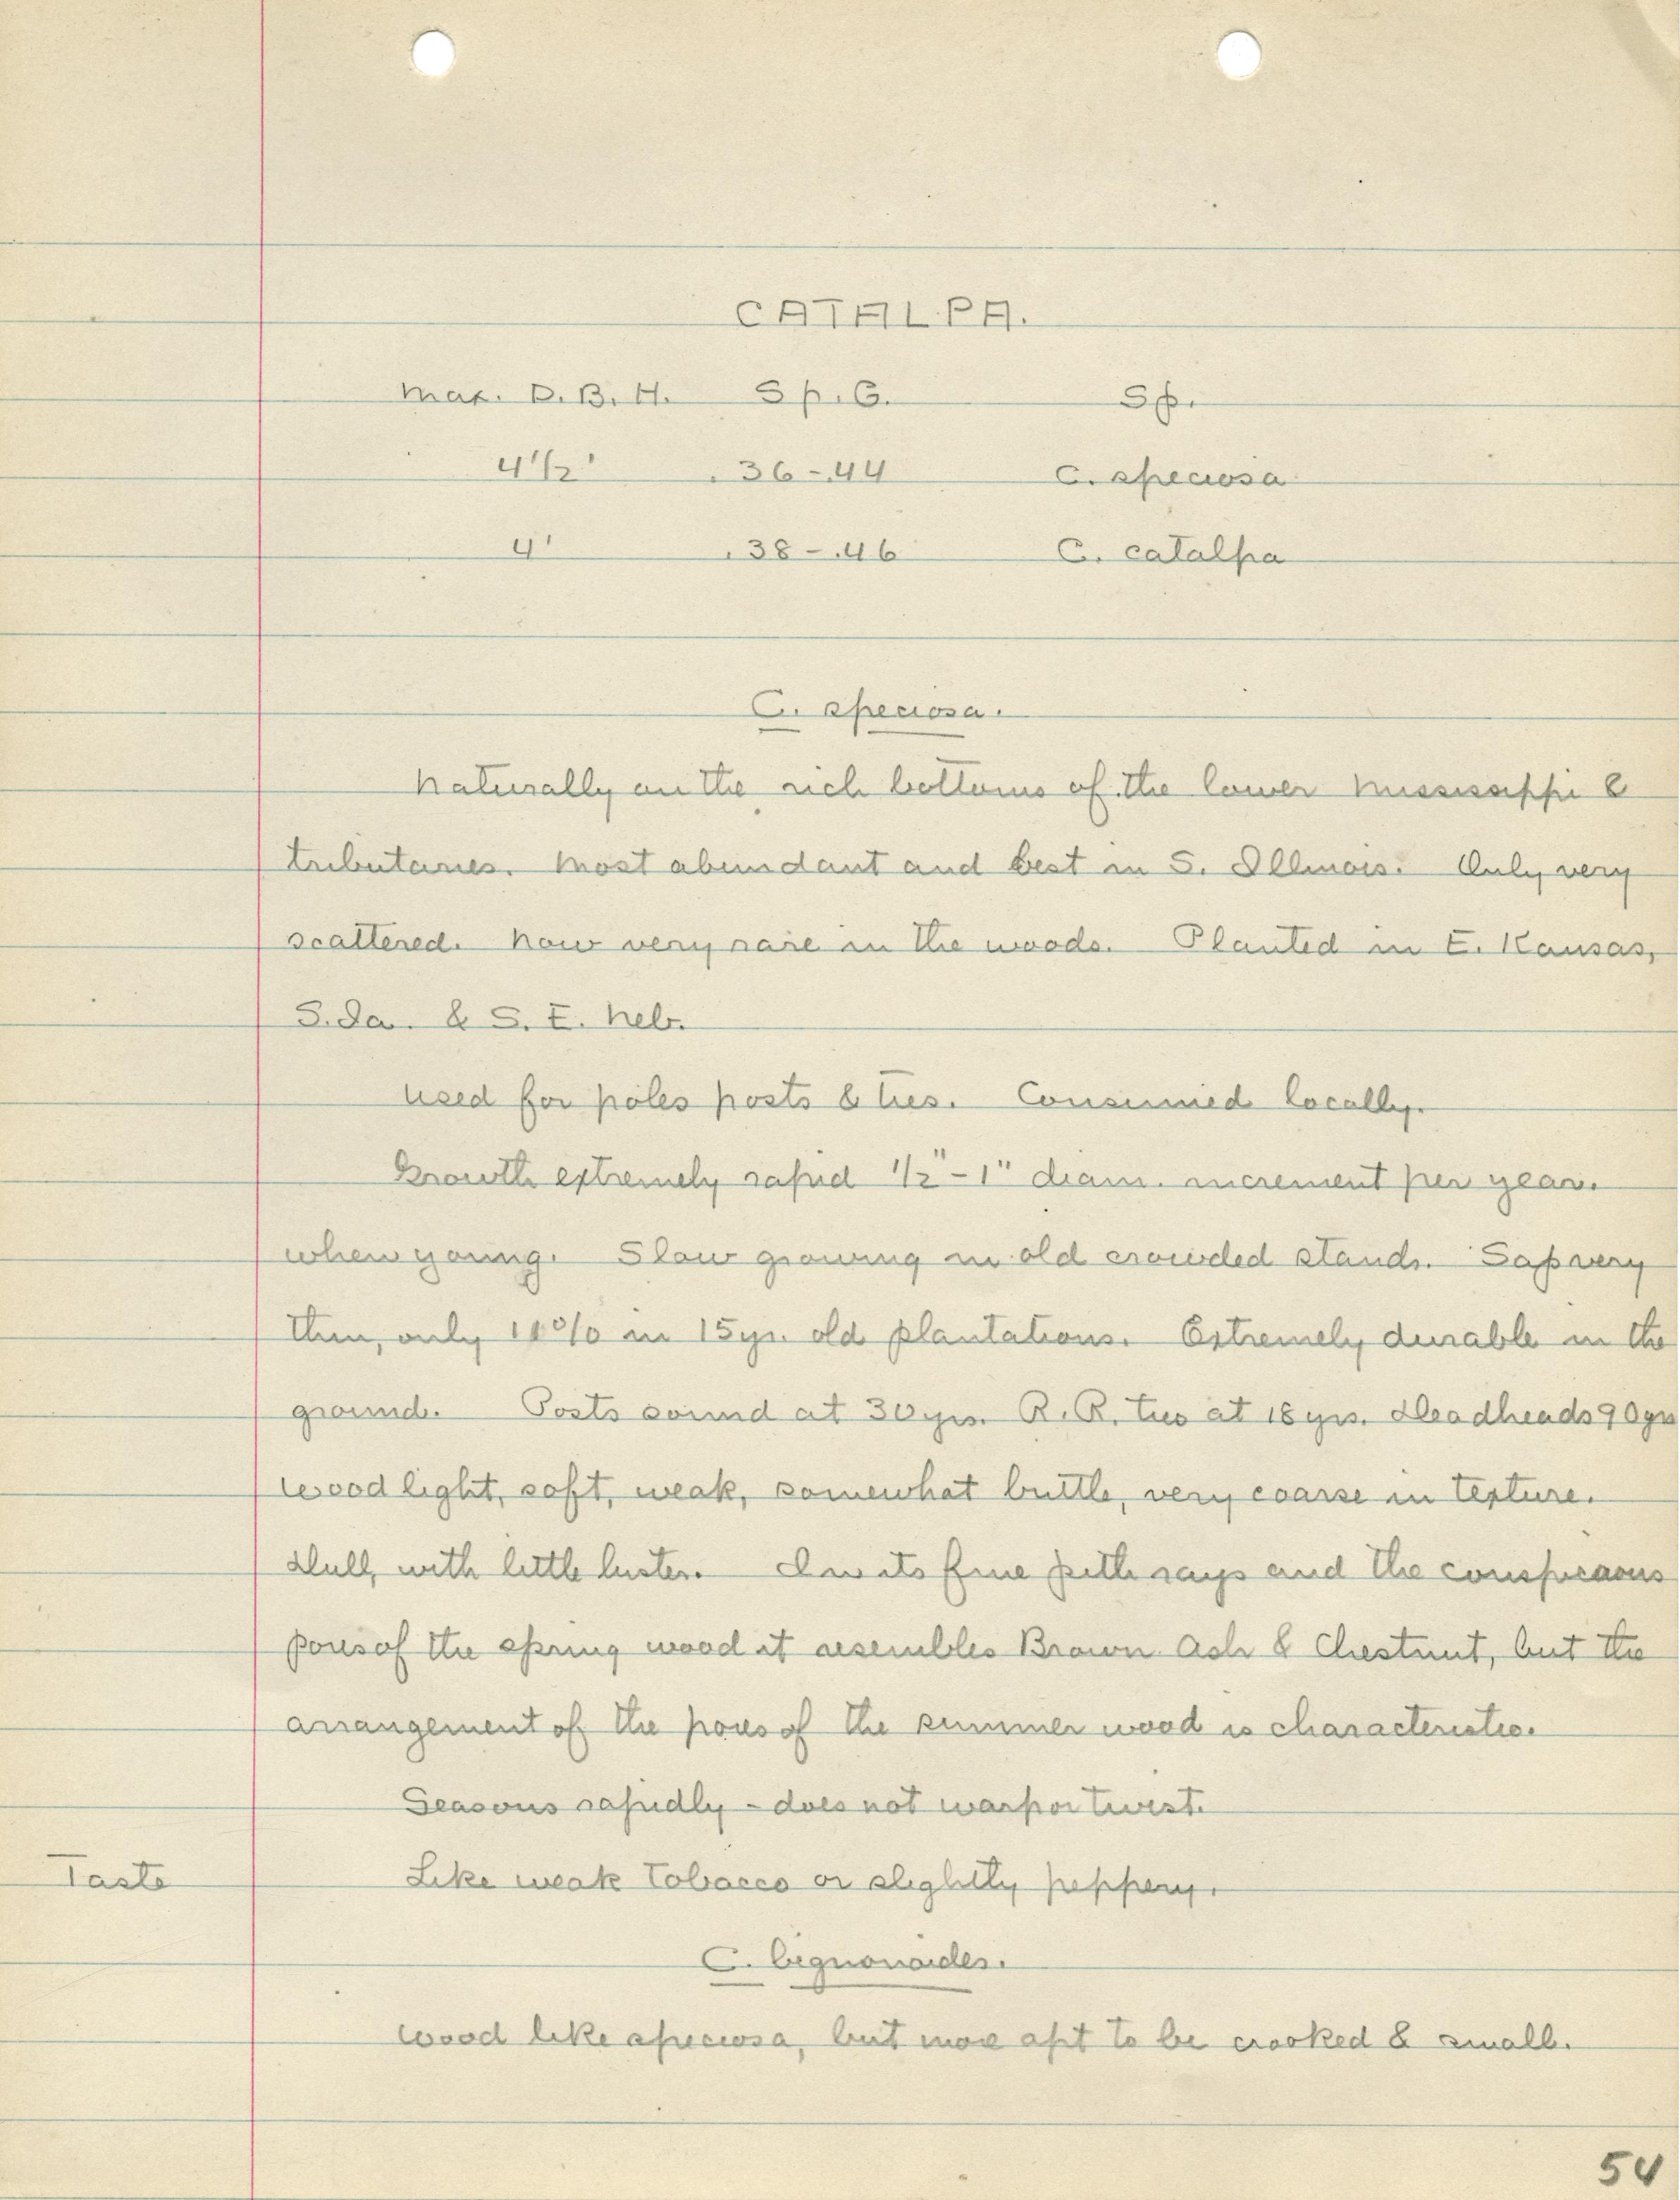 CATALPA.
Max. D.B.H. Sp.G. Sp.
4 1/2' .36-.44 C. speciosa
4' .38-.46 C. catalpa
C. speciosa.
Naturally on the rich bottoms of the lower Mississippi &
tributaries. Most abundant and best in S. Illinois. Only very
scattered. Now very rare in the woods. Planted in E. Kansas,
S. Ia. & S. E. Neb.
Used for poles posts & ties. Consumed locally.
Growth extremely rapid 1/2"-1" diam. increment per year.
when young. Slow growing in old crowded stands. Sap very
thin, only 10% in 15 yr. old plantations. Extremely durable in the
ground. Posts sound at 30 yrs. R.R. ties at 18 yrs. Deadheads 90 yrs
Wood light, soft, weak, somewhat brittle, very coarse in texture.
Dull, with little luster. In its fine pith rays and the conspicuous
pores of the spring wood it resembles Brown Ash & Chestnut, but the
arrangement of the pores of the summer wood is characteristic.
Seasons rapidly - does not warp or twist.
Taste Like weak tobacco or slightly peppery.
C. bignonoides.
Wood like speciosa, but more apt to be crooked & small.
54